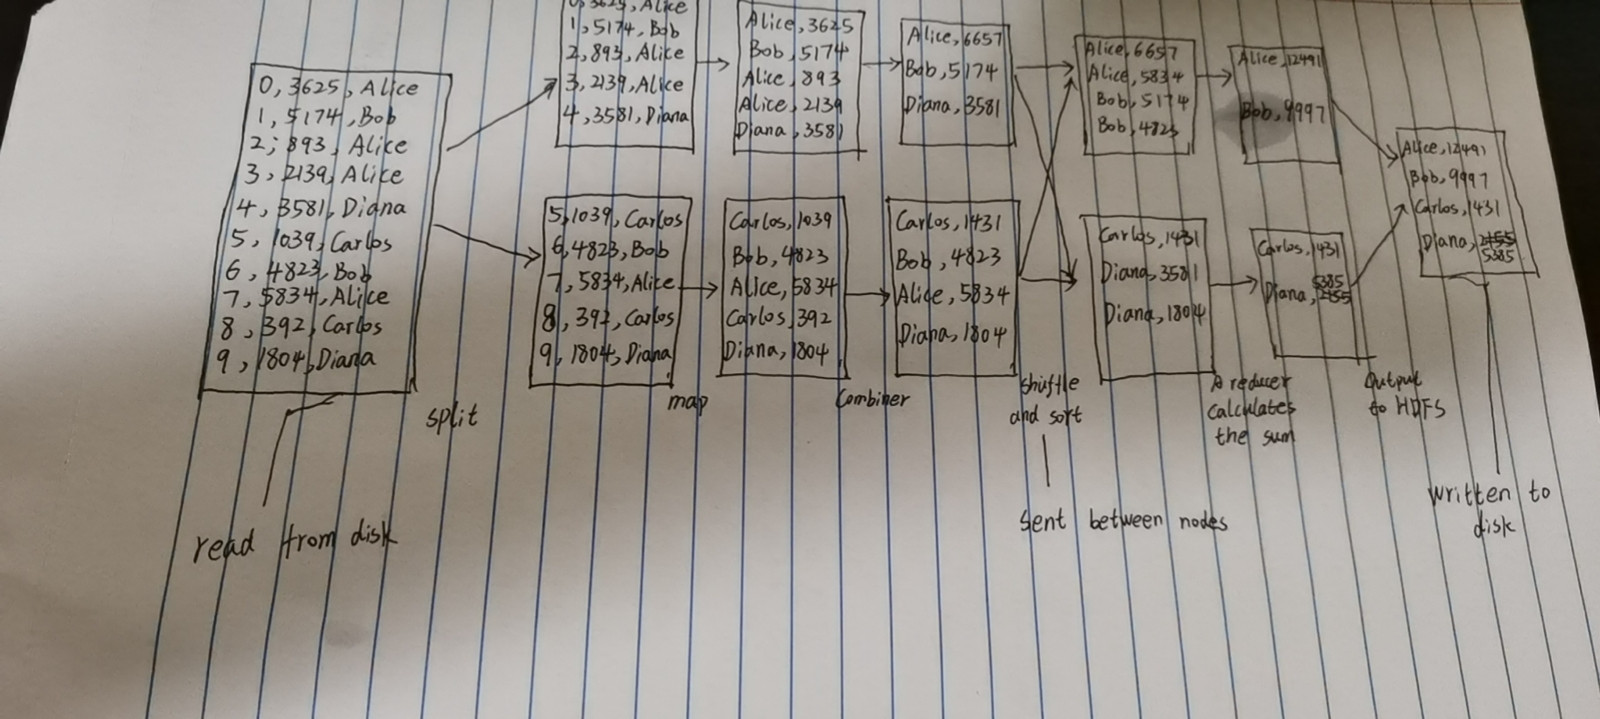 0, 3625, Alice
1, 5174, Bob
2, 893, Alice
3, 2139, Alice
4, 3581, Diana
5, 1039, Carlos
6, 4823, Bob
7, 5834, Alice
8, 392, Carlos
9, 1804, Diana
read from disk
split
0, 3625, Alice
1, 5174, Bob
2, 893, Alice
3, 2139, Alice
4, 3581, Diana
5, 1039, Carlos
6, 4823, Bob
7, 5834, Alice
8, 392, Carlos
9, 1804, Diana
map
Alice, 3625
Bob, 5174
Alice, 893
Alice, 2139
Diana, 3581
Carlos, 1039
Bob, 4823
Alice, 5834
Carlos, 392
Diana, 1804
Combiner
Alice, 6657
Bob, 5174
Diana, 3581
Carlos, 1431
Bob, 4823
Alice, 5834
Diana, 1804
shuffle
and sort
sent between nodes
Alice, 6657
Alice, 5834
Bob, 5174
Bob, 4823
Carlos, 1431
Diana, 3581
Diana, 1804
A reducer
calculates
the sum
Alice, 12491
Bob, 9997
Carlos, 1431
Diana, 5385
Output
to HDFS
Alice, 12491
Bob, 9997
Carlos, 1431
Diana,
5385
written to
disk